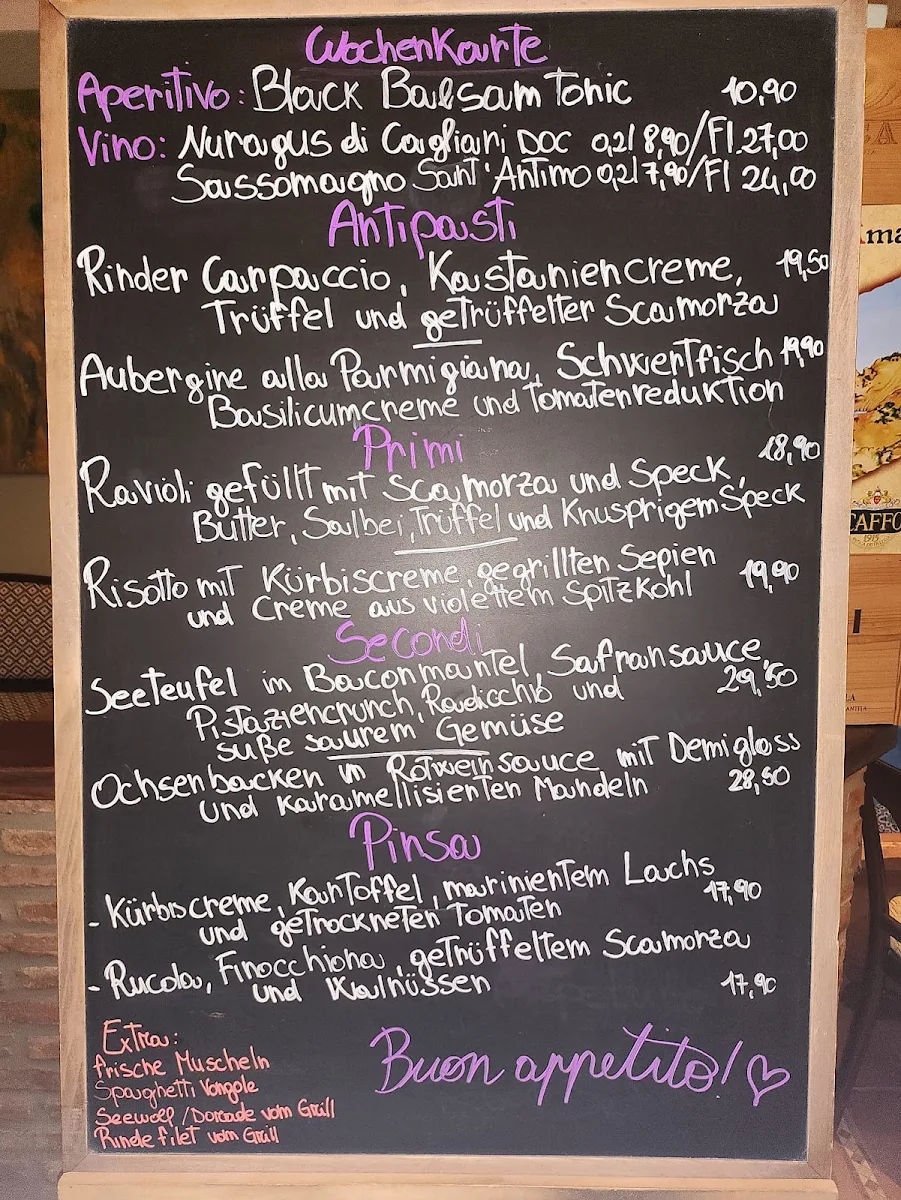 Wochenkarte
Aperitivo: Black Balsam Tonic 10,90
Vino: Nuragus di Cagliari DOC 0,2l 8,90/Fl.27,00
Sassomagno Sant'Antimo 0,2l 7,90/Fl 24,00
Antipasti
Rinder Carpaccio, Kastaniencreme, 19,50
Trüffel und getrüffelter Scamorza
Aubergine alla Parmigiana, Schwertfisch 19,90
Basilicumcreme und Tomatenreduktion
Primi
Ravioli gefüllt mit Scamorza und Speck, 18,90
Butter, Salbei, Trüffel und Knusprigem Speck
Risotto mit Kürbiscreme, gegrillten Sepien 19,90
und Creme aus violettem Spitzkohl
Secondi
Seeteufel in Baconmantel, Safransauce,
Pistaziencrunch, Radicchio und 29,50
suße saurem Gemüse
Ochsenbacken in Rotweinsauce mit Demigloss
und karamellisierten Mandeln 28,50
Pinsa
- Kürbiscreme, Kartoffel, mariniertem Lachs
und getrockneten Tomaten 17,90
- Rucola, Finocchiona, getrüffeltem Scamorza
und Walnüssen 17,90
Extra:
frische Muscheln
Spaghetti Vongole
Seewolf/Dorade vom Grill
Rinde filet vom Grill
Buon appetito!
ma
CAFFO
1915